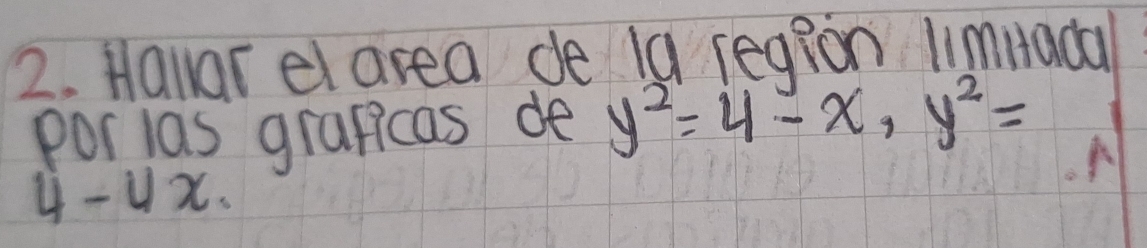 2. Hallar el area de la región limitada
por las graficas de y² = 4 - x, y² =
4 - 4x.